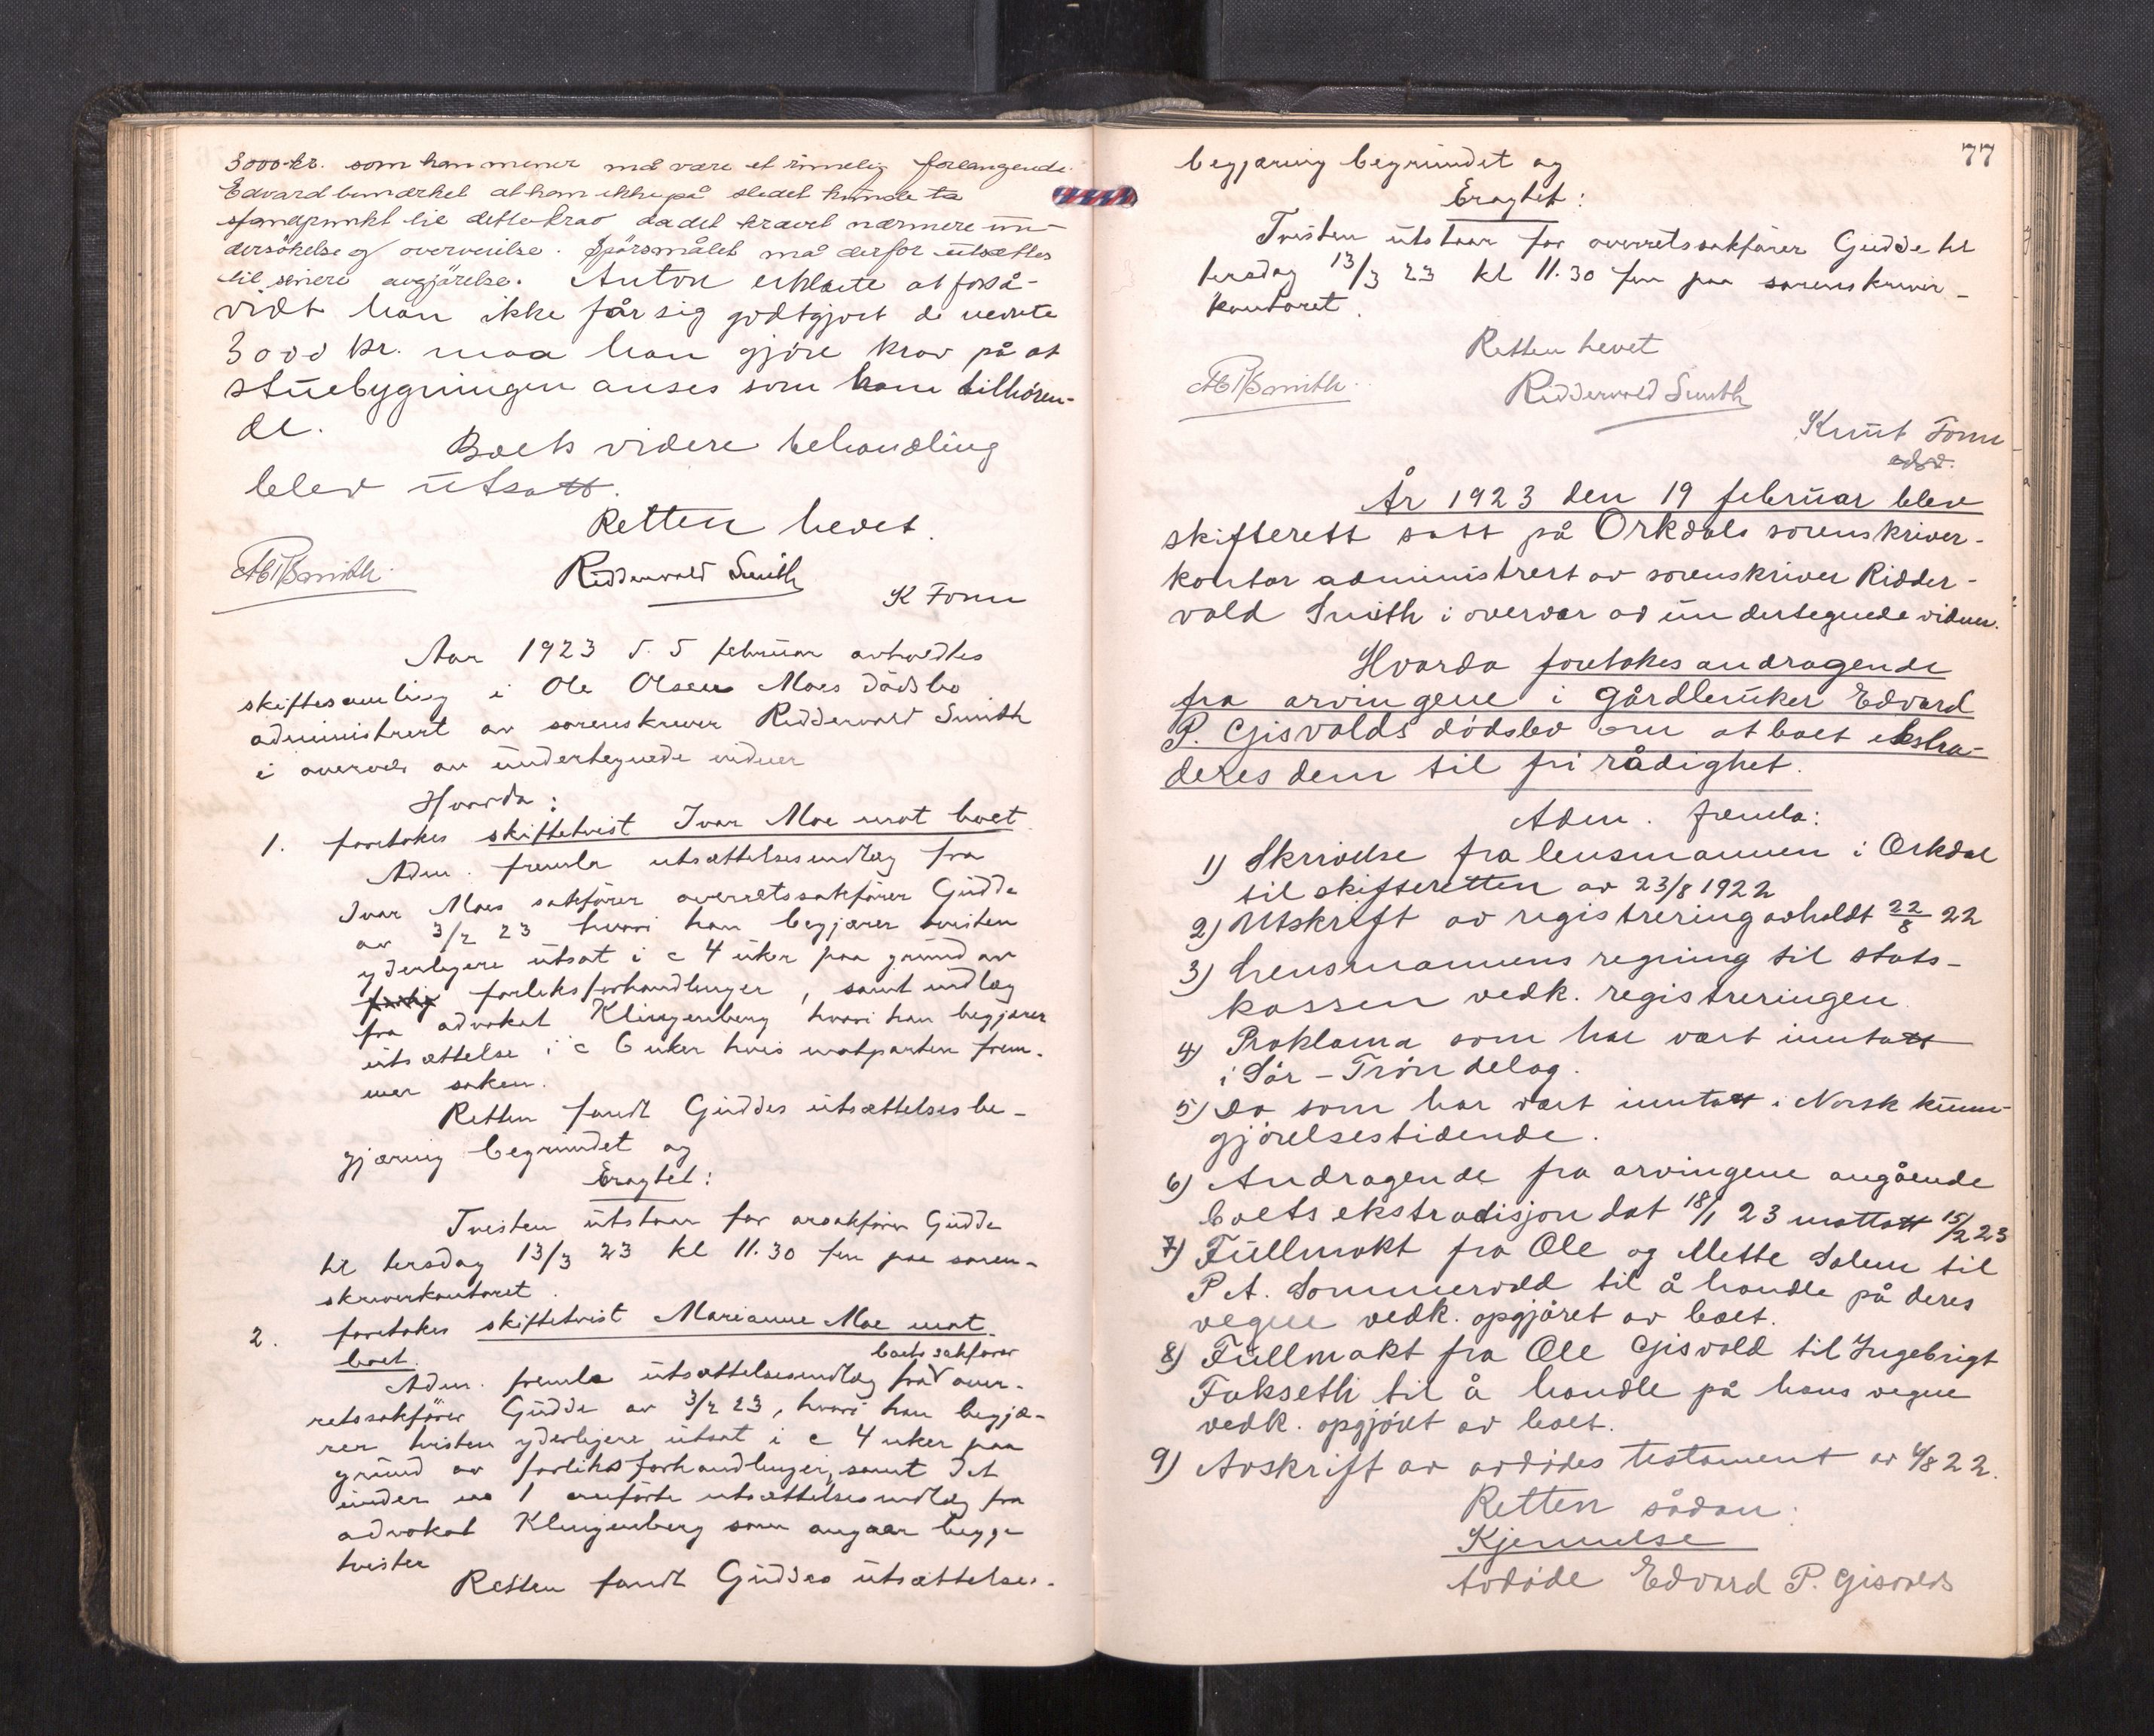 3000 kr. som han mener må være et rimelig forlangende.
Edvard bemærket at han ikke på stedet kunde ta
standpunkt til dette krav da det krævet nærmere un-
dersökelse og overveielse. Spörsmålet må derfor utsættes
til senere avgjörelse. Anton erklærte at forså-
vidt han ikke får sig godtgjort de nevnte
3000 kr. maa han gjöre krav på at
stuebygningen anses som ham tilhören-
de.
Boets videre behandling
blev utsatt.
Retten hevet.
Ridderwold Smith
K Fonn
Aar 1923 d. 5 februar avholdtes
skiftesamling i Ole Olsen Moes dödsbo
administrert av sorenskriver Ridderwold Smith
i overvær av undertegnede vidner
Hvorda:
1. foretokes skiftetvist Ivar Moe mot boet.
Adm. fremla utsættelsesindlæg fra
Ivar Moes sakförer overretssakförer Gudde
av 3/2 23 hvori han begjærer tvisten
yderligere utsat i c 4 uker paa grund av
forliksforhandlinger, samt indlæg
fra advokat Klingenberg hvori han begjærer
utsættelse i c 6 uker hvis motparten frem-
mer saken.
Retten fandt Guddes utsættelsesbe-
gjæring begrundet og
Eragtet:
Tvisten utstaar for orsakförer Gudde
til tirsdag 13/3 23 kl 11.30 fm paa soren-
skriverkontoret.
2. foretokes skiftetvist Marianne Moe mot
boet.
boets sakförer
Adm. fremla utsættelsesindlæg fra over-
retssakförer Gudde av 3/2 23, hvori han begjæ-
rer tvisten yderligere utsat i c 4 uker paa
grund av forliksforhandlinger, samt det
under no 1 anförte utsættelsesindlæg fra
advokat Klingenberg som angaar begge
tvister
Retten fandt Guddes utsættelses-
77
begjæring begrundet og
Eragtet:
Tvisten utstaar for overretssakförer Gudde til
tirsdag 13/3 23 kl 11.30 fm paa sorenskriver-
kontoret.
Retten hevet
Ridderwold Smith
Knut Fonn
År 1923 den 19 februar blev
skifterett satt på Orkdals sorenskriver-
kontor administrert av sorenskriver Ridder-
vold Smith i overvær av undertegnede vidner.
Hvorda foretokes andragende
fra arvingene i gårdbruker Edvard
P. Gisvolds dödsbo om at boet ekstra-
deres dem til fri rådighet.
Adm. fremla:
1) Skrivelse fra lensmannen i Orkdal
til skifteretten av 23/8 1922
2) Utskrift av registrering avholdt 22/8 22
3) Lensmannens regning til stats-
kassen vedk. registreringen.
4) Proklama som har vært inntatt
i Sör-Tröndelag.
5) Do som har vært inntatt i Norsk kunn-
gjörelsestidende.
6) Andragende fra arvingene angående
boets ekstradisjon dat 18/1 23 mottatt 15/2 23
7) Fullmakt fra Ole og Mette Solem til
P. A. Sommervold til å handle på deres
vegne vedk. opgjöret av boet.
8) Fullmakt fra Ole Gisvold til Ingebrigt
Fakseth til å handle på hans vegne
vedk. opgjöret av boet.
9) Avskrift av avdödes testament av 4/8 22.
Retten sådan:
Kjennelse
Avdöde Edvard P. Gisvolds